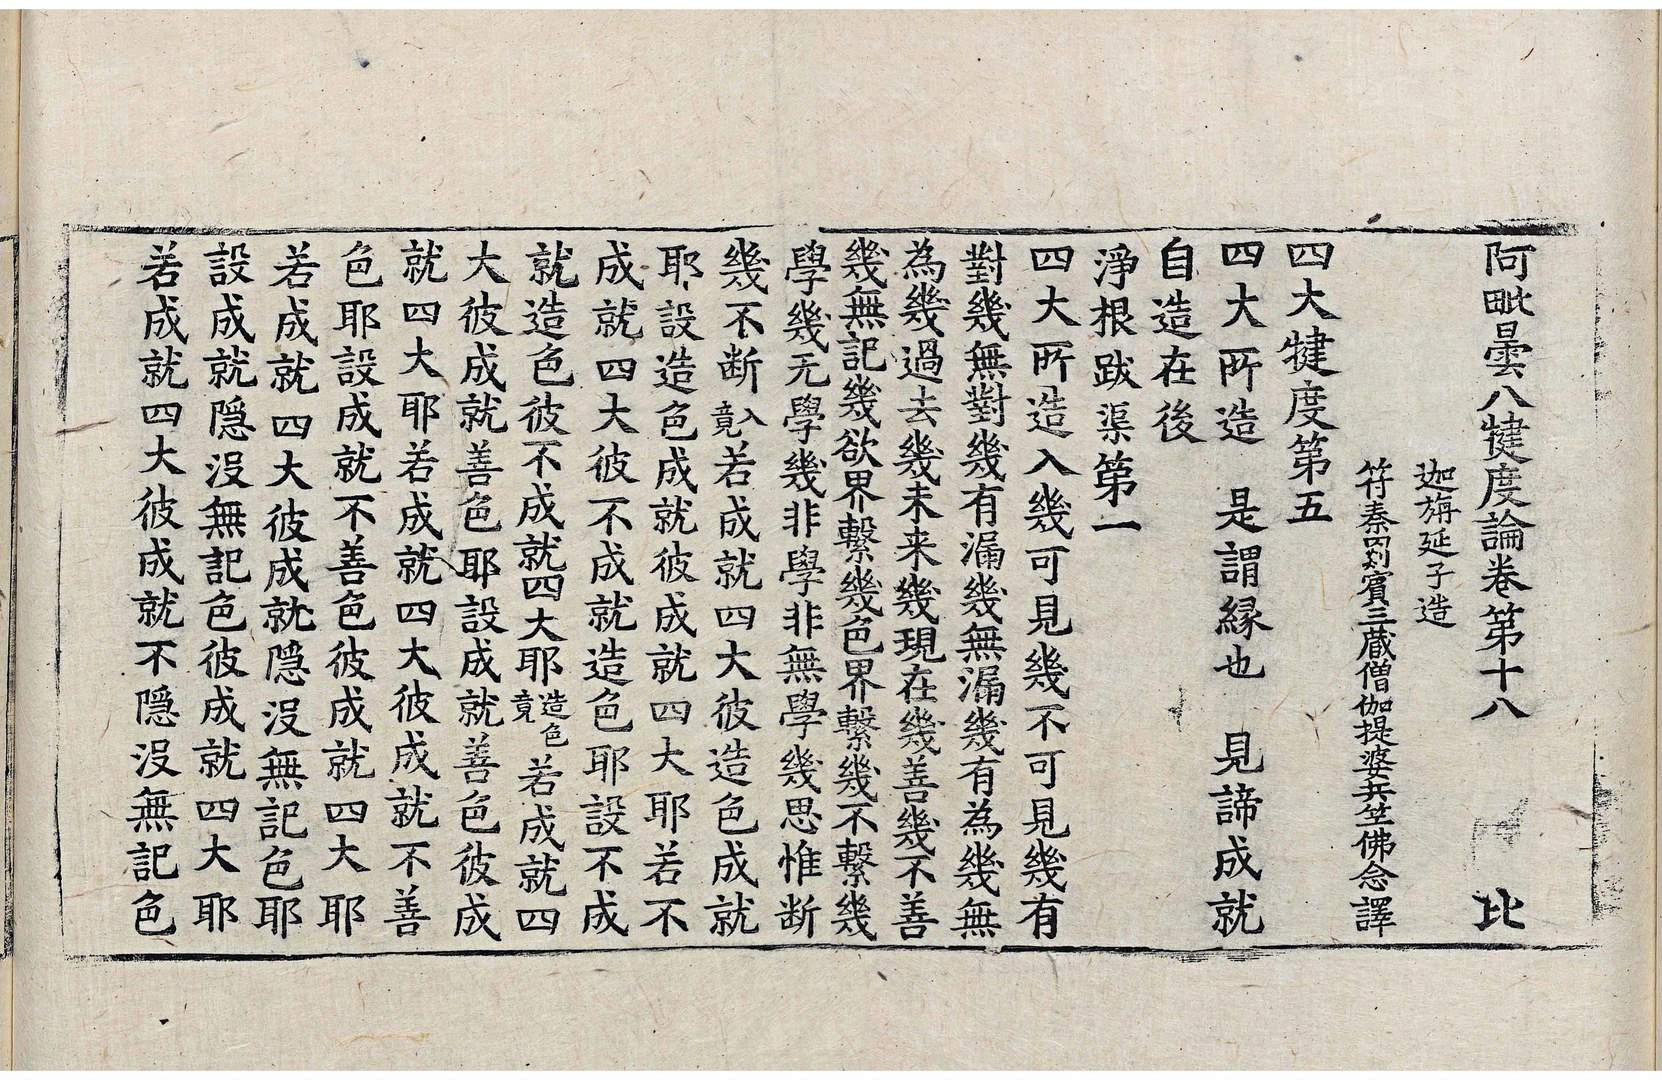 阿毗曇八犍度論卷第十八 比
迦旃延子造
符秦罽賓三藏僧伽提婆共竺佛念譯
四大犍度第五
四大所造 是謂緣也 見諦成就
自造在後
淨根跋渠第一
四大所造入幾可見幾不可見幾有
對幾無對幾有漏幾無漏幾有為幾無
為幾過去幾未来幾現在幾善幾不善
幾無記幾欲界繫幾色界繫幾不繫幾
學幾无學幾非學非無學幾思惟断
幾不断入竟若成就四大彼造色成就
耶設造色成就彼成就四大耶若不
成就四大彼不成就造色耶設不成
就造色彼不成就四大耶造色竟若成就四
大彼成就善色耶設成就善色彼成
就四大耶若成就四大彼成就不善
色耶設成就不善色彼成就四大耶
若成就四大彼成就隱沒無記色耶
設成就隱沒無記色彼成就四大耶
若成就四大彼成就不隱沒無記色